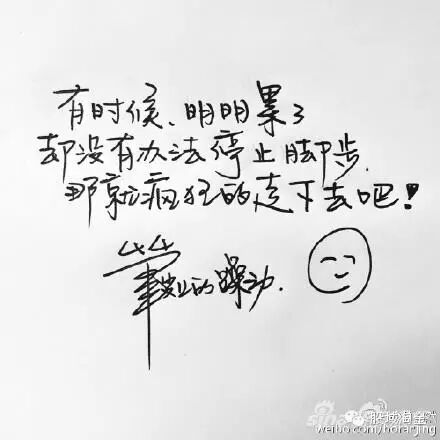 有时候、明明累了
却没有办法停止脚步.
那就疯狂的走下去吧!
的躁动.
weibo.com/horanjing